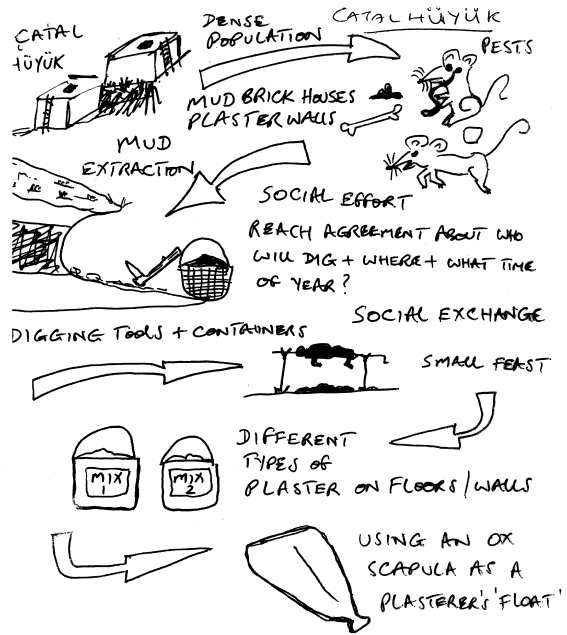 ÇATAL
HÜYÜK
DENSE
POPULATION
CATAL HÜYÜK
PESTS
MUD BRICK HOUSES
PLASTER WALLS
MUD
EXTRACTION
SOCIAL EFFORT
REACH AGREEMENT ABOUT WHO
WILL DIG + WHERE + WHAT TIME
OF YEAR?
SOCIAL EXCHANGE
DIGGING TOOLS + CONTAINERS
SMALL FEAST
MIX
1
MIX
2
DIFFERENT
TYPES OF
PLASTER ON FLOORS/WALLS
USING AN OX
SCAPULA AS A
PLASTERER'S 'FLOAT'